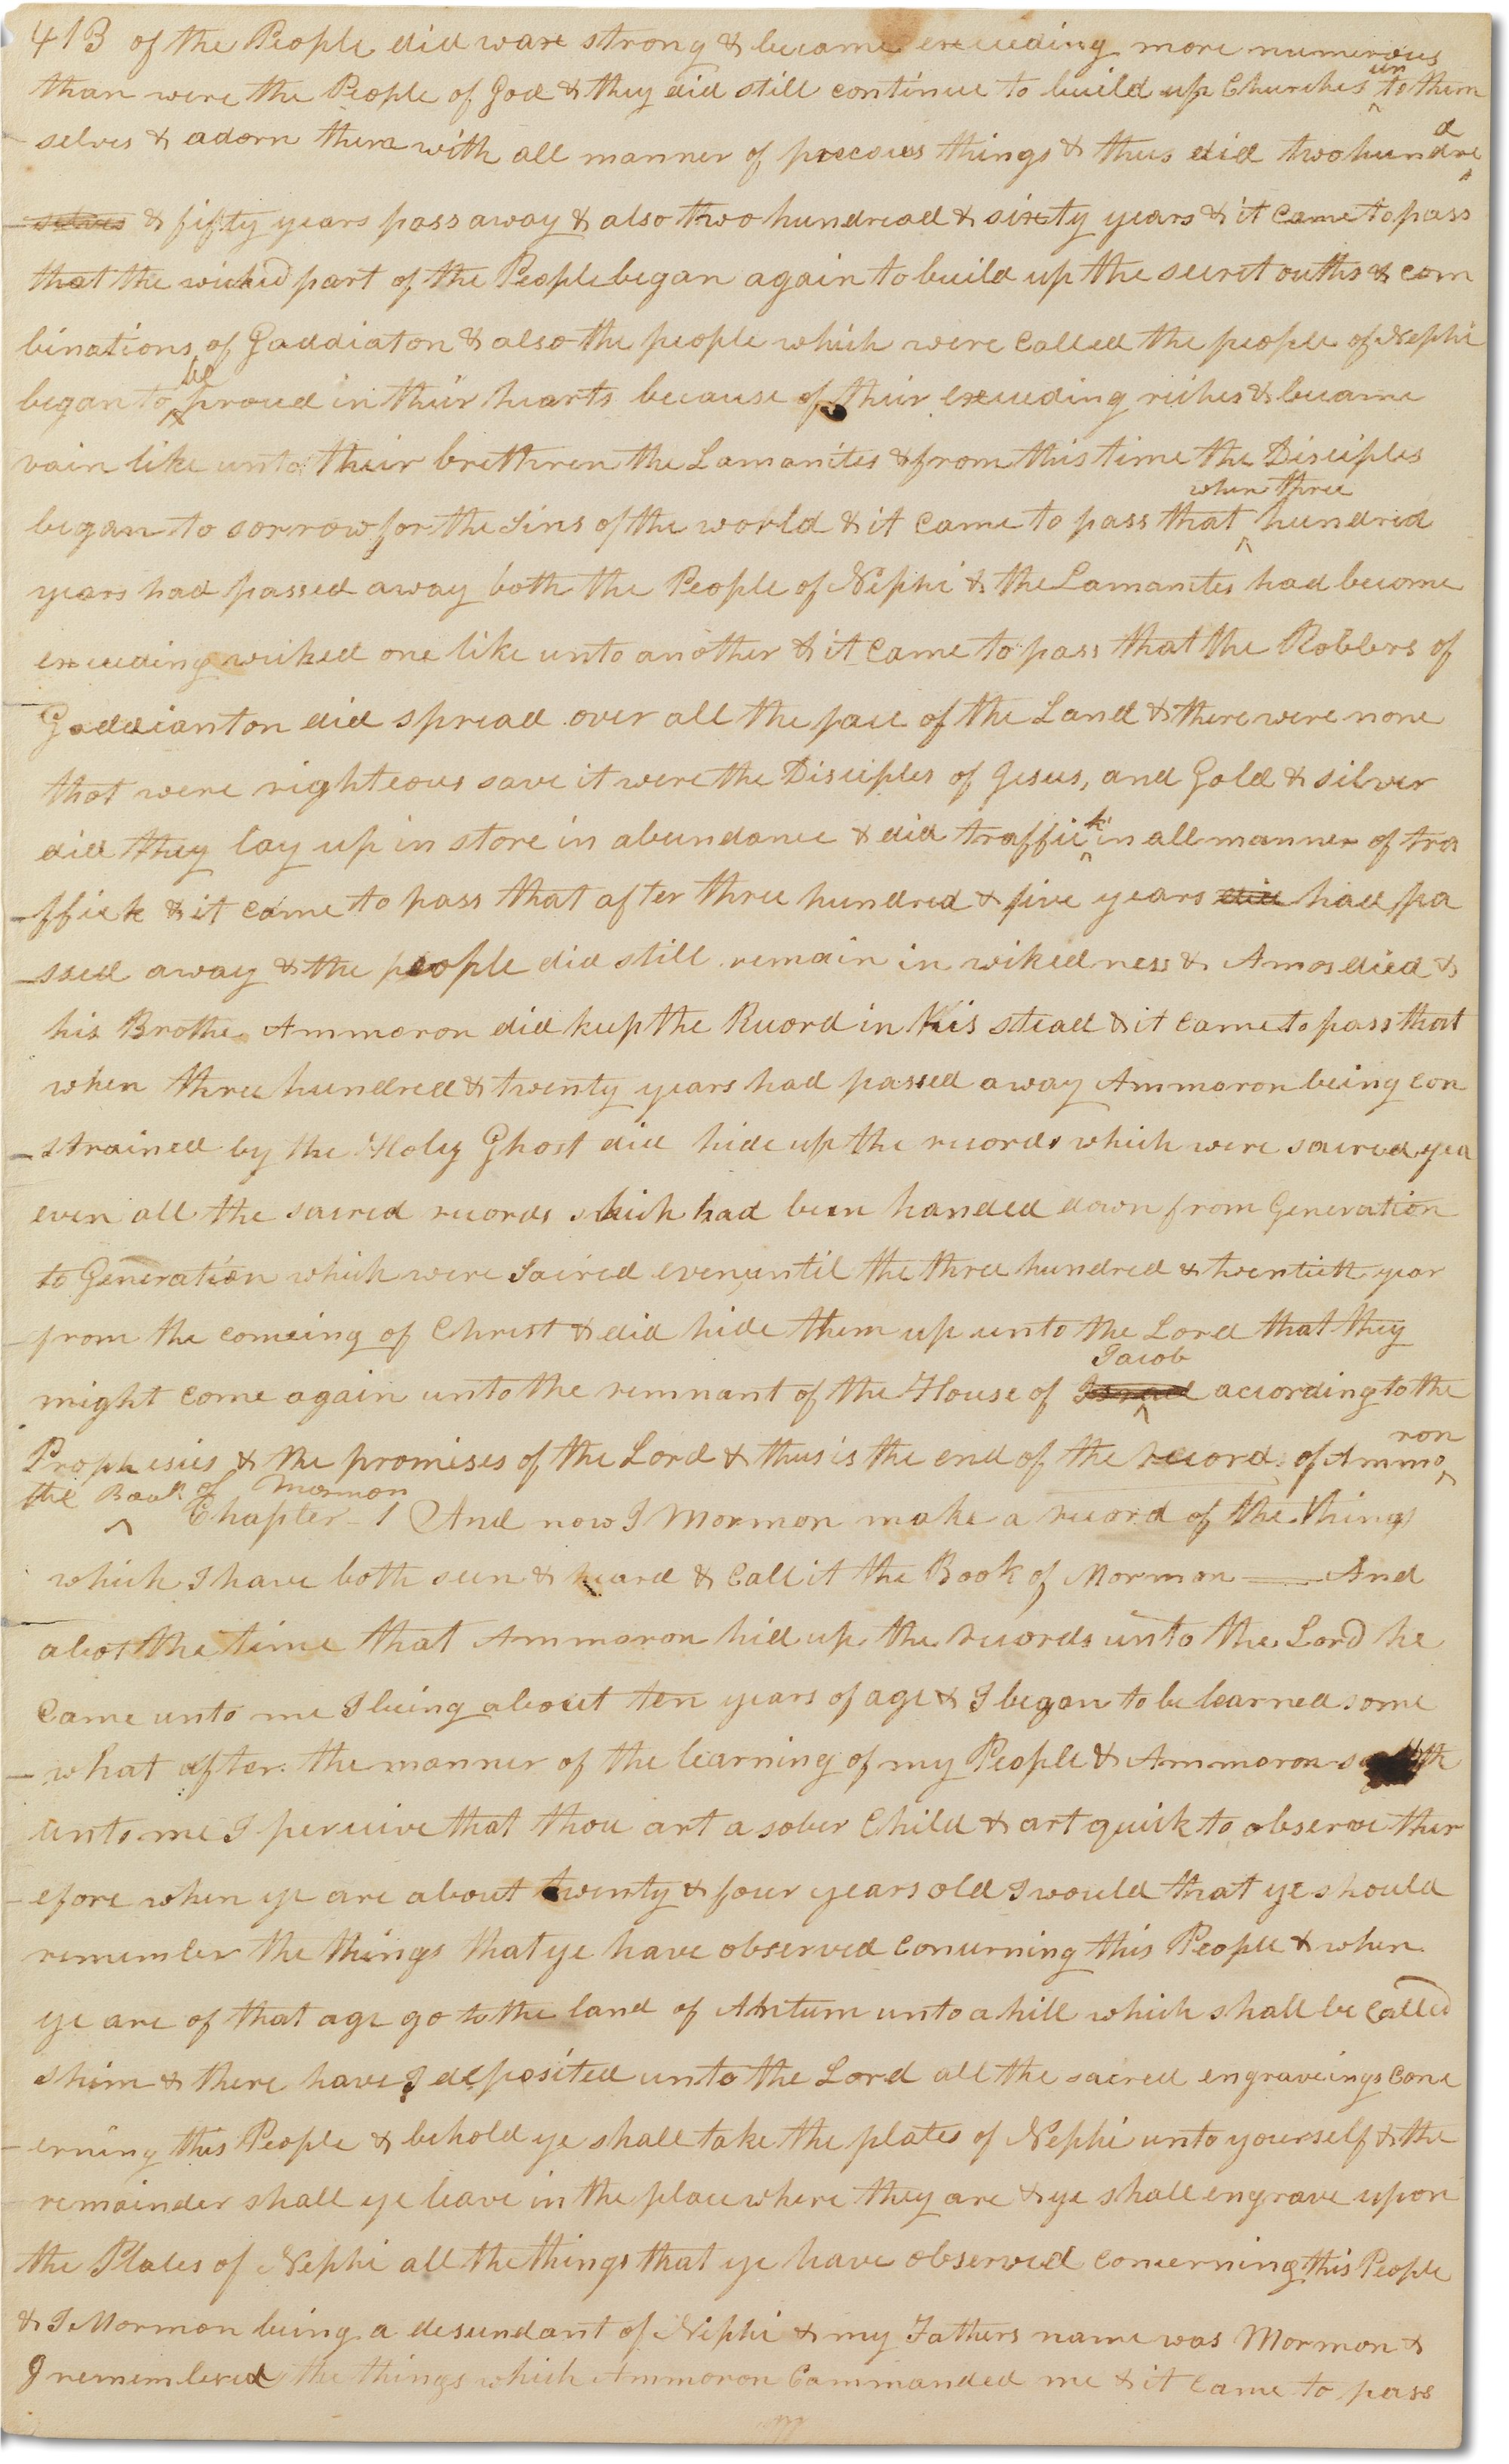 413 of the People did wax strong & became exceeding more numerous
than were the People of God & they did still continue to build up Churches unto them
selves & adorn them with all manner of precious things & thus did two hundred
selves & fifty years pass away & also two hundread & sixty years & it came to pass
that the wicked part of the People began again to build up the secret ouths & com
binations of Gaddiaton & also the people which were called the people of Nephi
began to be proud in their hearts because of their exceeding riches & became
vain like unto their brethren the Lamanites & from this time the Disciples
began to sorrow for the Sins of the world & it came to pass that when three hundred
years had passed away both the People of Nephi & the Lamanites had become
exceeding wicked one like unto another & it came to pass that the Robbers of
Gaddianton did spread over all the face of the Land & there were none
that were righteous save it were the Disciples of Jesus, and Gold & silver
did they lay up in store in abundance & did traffick in all manner of tra
ffick & it came to pass that after three hundred & five years did had pa
ssed away & the people did still remain in wikedness & Amos died &
his Brother Ammoron did keep the Record in his stead & it came to pass that
when three hundred & twenty years had passed away Ammoron being con
strained by the Holy Ghost did hide up the records which were sacred yea
even all the sacred records which had been handed down from Generation
to Generation which were Sacred even until the three hundred & twentieth year
from the comeing of Christ & did hide them up unto the Lord that they
might come again unto the remnant of the House of Israel Jacob according to the
Prophesies & the promises of the Lord & thus is the end of the record of Ammoron
the Book of Mormon Chapter 1 And now I Mormon make a record of the things
which I have both seen & heard & call it the Book of Mormon —— And
abot the time that Ammoron hid up the records unto the Lord he
came unto me I being about ten years of age & I began to be learned some
what after the manner of the learning of my People & Ammoron saith
unto me I perceive that thou art a sober Child & art quick to observe ther
efore when ye are about twenty & four years old I would that ye should
remember the things that ye have observed concerning this People & when
ye are of that age go to the land of Antum unto a hill which shall be called
shim & there have I deposited unto the Lord all the sacred engraveings conc
erning this People & behold ye shall take the plates of Nephi unto yourself & the
remainder shall ye leave in the place where they are & ye shall engrave upon
the Plates of Nephi all the things that ye have observed concerning this People
& I Mormon being a desendant of Nephi & my Fathers name was Mormon &
I remembered the things which Ammoron Commanded me & it came to pass